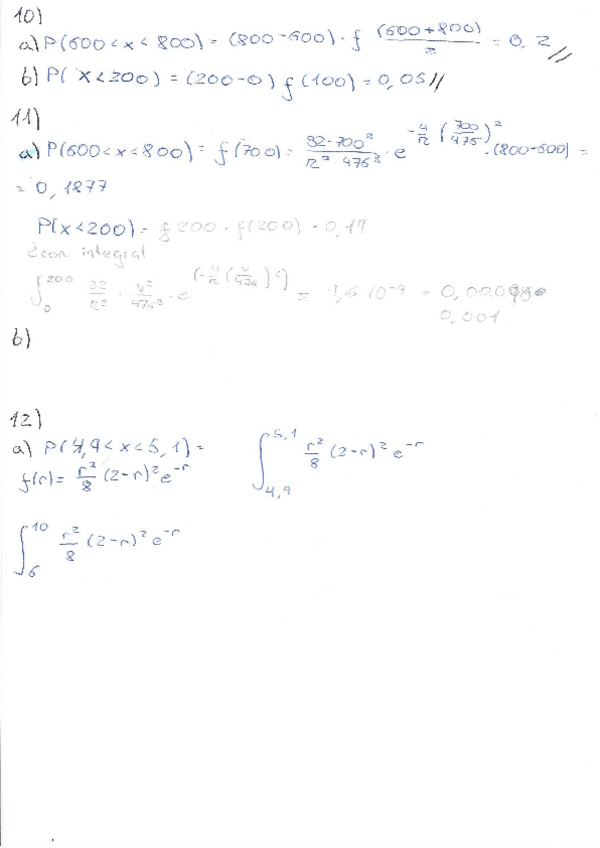 10)
a) P(600 < x < 800) = (800-600) · f (600+800)/2 = 0,2 //
b) P( X < 200) = (200-0) f (100) = 0,05 //
11)
a) P(600 < x < 800) = f(700) = 32·700² / π² 475³ · e^(-4/π (700/475)²) · (800-600) =
= 0,1877
P(x < 200) = 200 · f(200) = 0,19
¿con integral
∫₀²⁰⁰ 32/π² · v²/475³ · e^(-4/π (v/475)²) = 9,6·10⁻⁴ =
0,001
b)
12)
a) P(4,9 < x < 5,1) = ∫_4,9^5,1 r²/8 (2-r)² e^-r
f(r) = r²/8 (2-r)² e^-r
∫_6^10 r²/8 (2-r)² e^-r